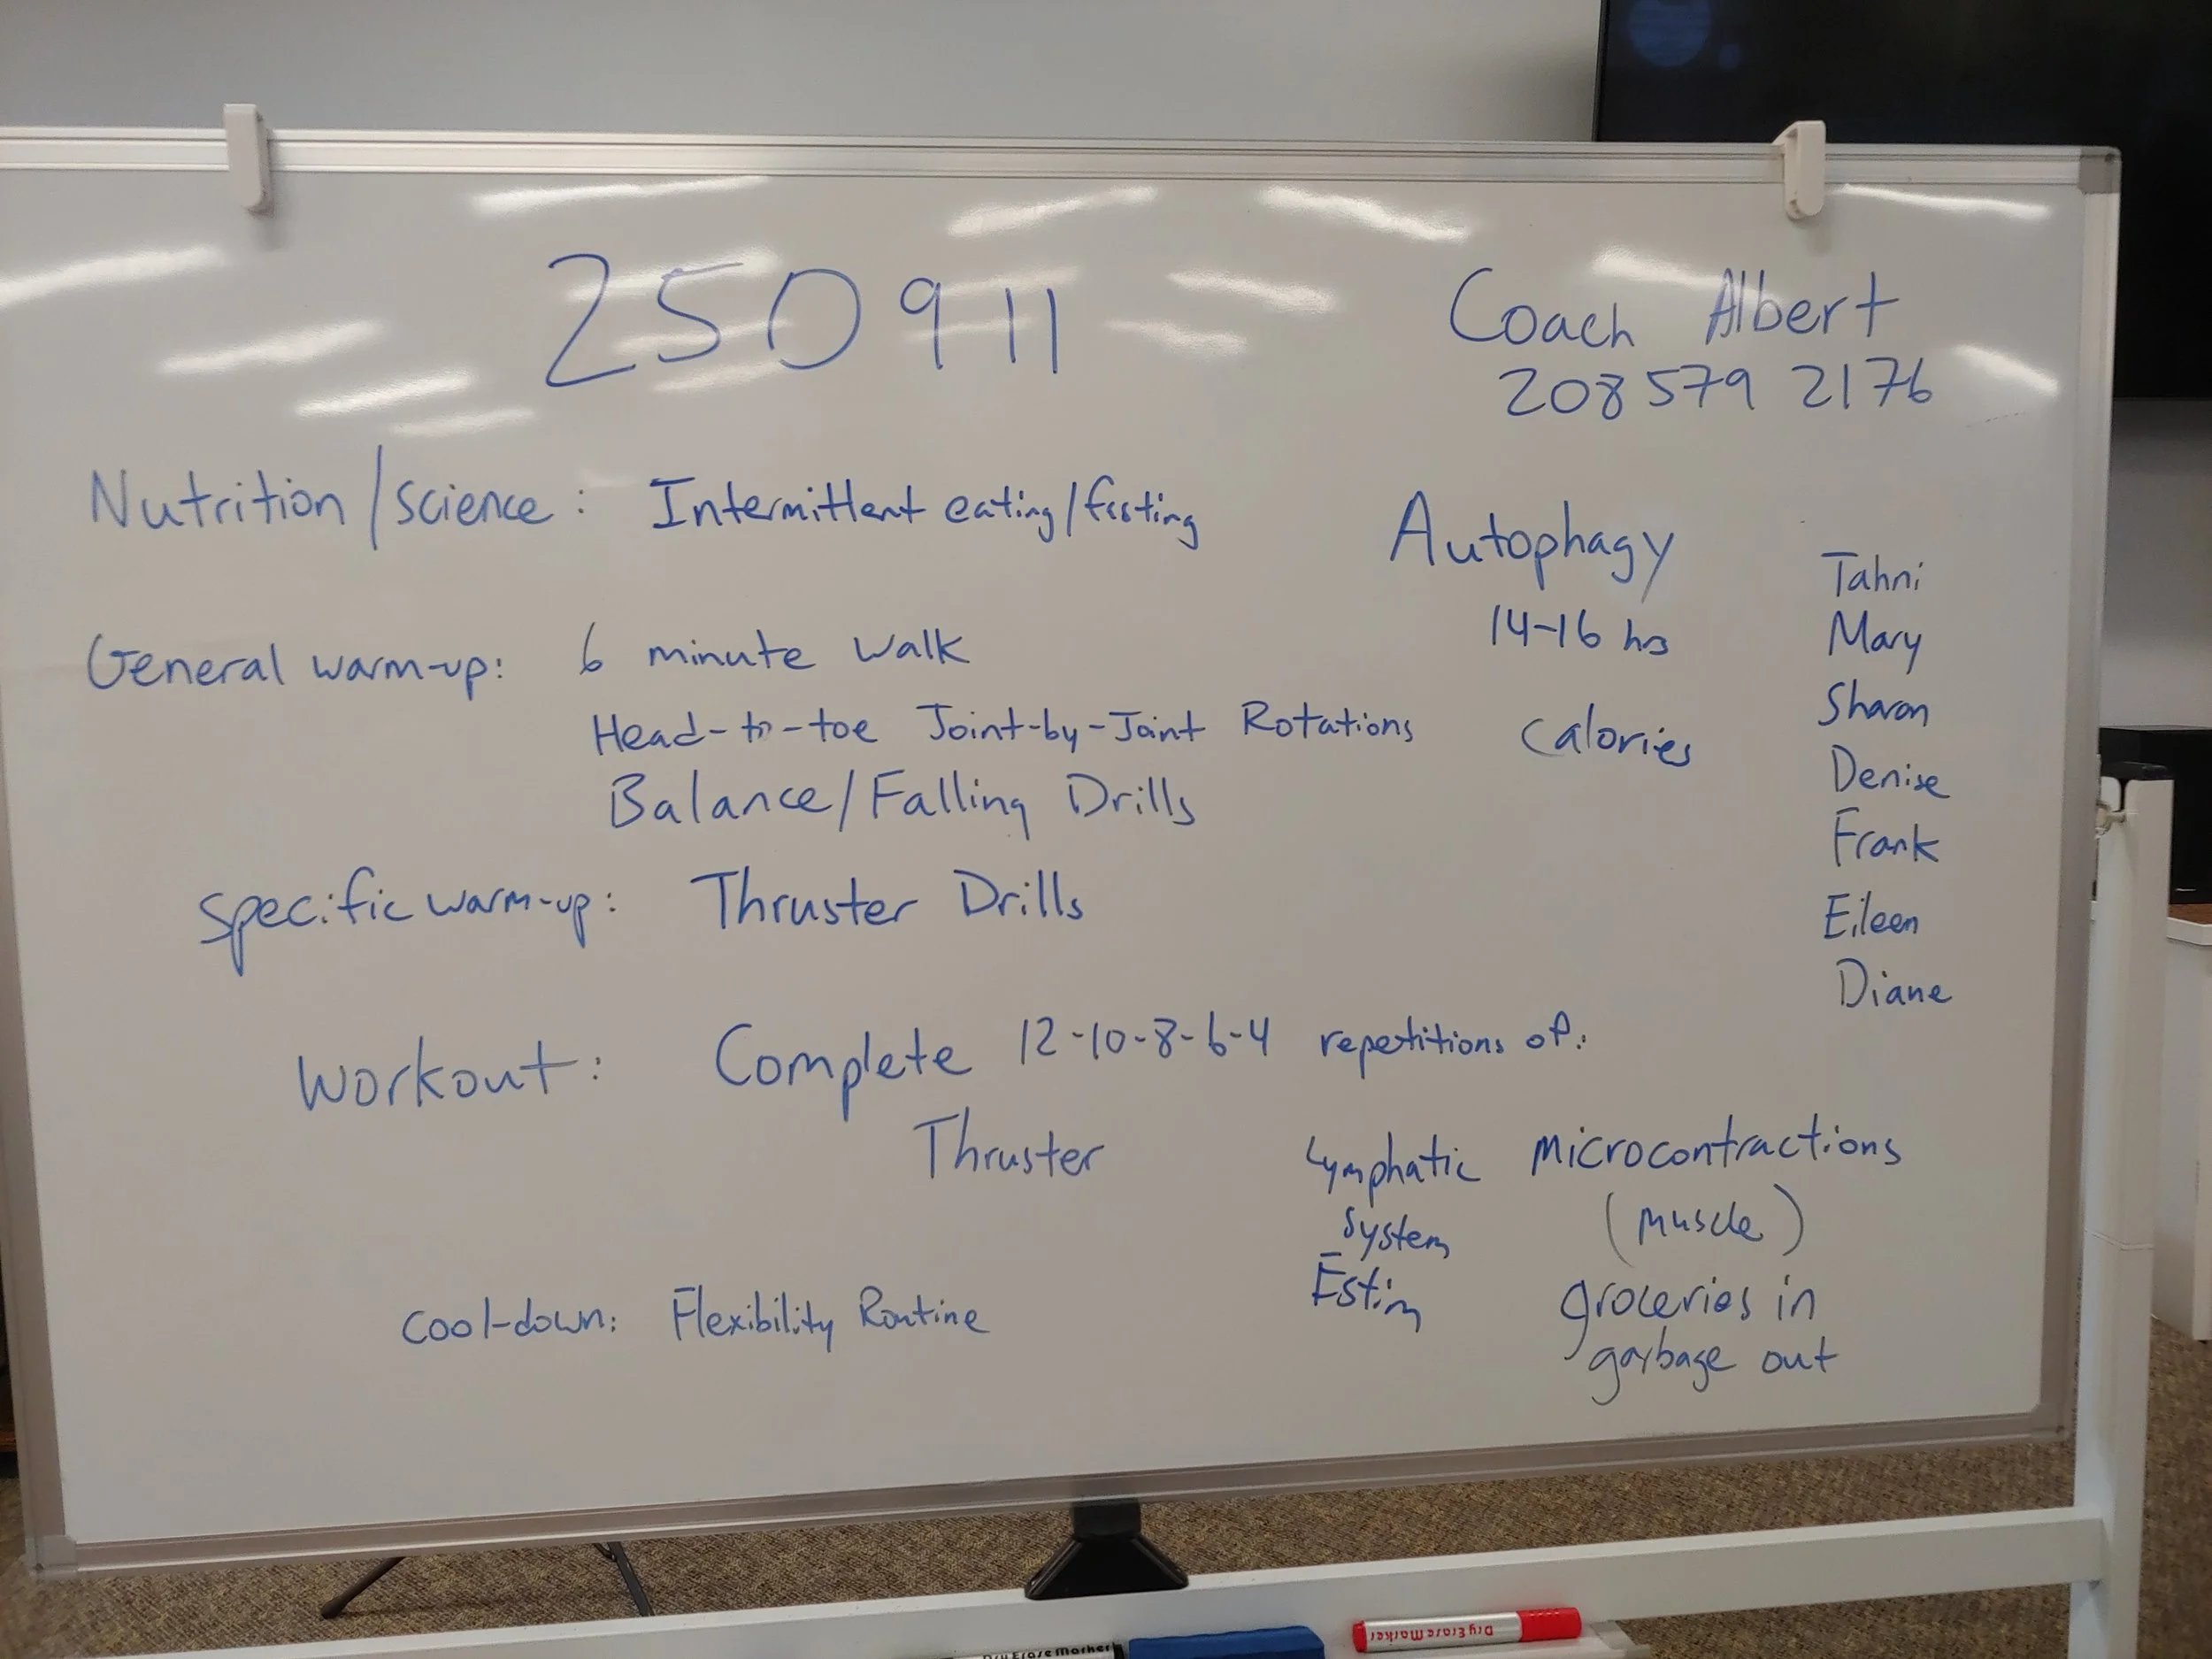 250911
Coach Albert
208 579 2176
Nutrition/science: Intermittent eating/fasting
Autophagy
14-16 hrs
Calories
Tahni
Mary
Sharon
Denise
Frank
Eileen
Diane
General warm-up: 6 minute walk
Head-to-toe Joint-by-Joint Rotations
Balance/Falling Drills
Specific warm-up: Thruster Drills
Workout: Complete 12-10-8-6-4 repetitions of:
Thruster
Lymphatic
System
Estim
Microcontractions
(muscle)
groceries in
garbage out
Cool-down: Flexibility Routine
Dry Erase Marker
Dry Erase Marker